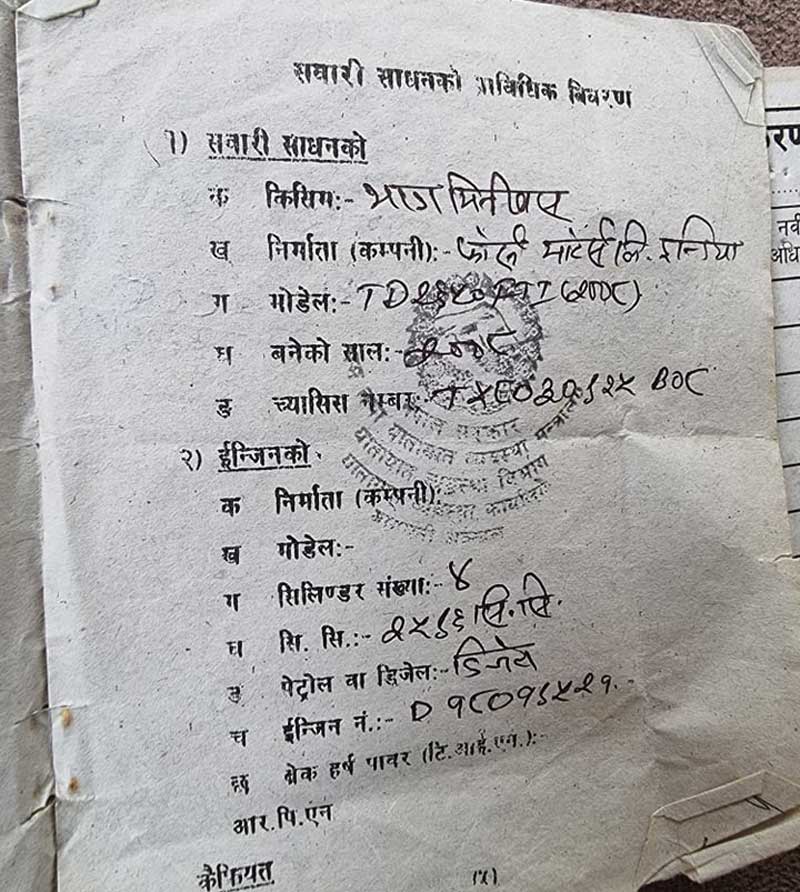 सवारी साधनको प्राविधिक विवरण
१) सवारी साधनको
क किसिम:- भाग मिनीबस
ख निर्माता (कम्पनी):- फोर्स मोटर्स लि. इन्डिया
ग मोडेल:- TD २६५० FTI (२००८)
घ बनेको साल:- २००८
ङ च्यासिस नम्बर:-
नेपाल सरकार
यातायात व्यवस्था विभाग
२) ईन्जिनको
क निर्माता (कम्पनी):
ख मोडेल:-
ग सिलिण्डर संख्या:- ४
घ सि. सि.:- २५९६ सि.सि.
ङ पेट्रोल वा डिजेल:- डिजेल
च ईन्जिन नं.:-
छ ब्रेक हर्ष पावर (टि.आई.एन.):-
आर.पि.एन
कैफियत
रण
नवी
अधि